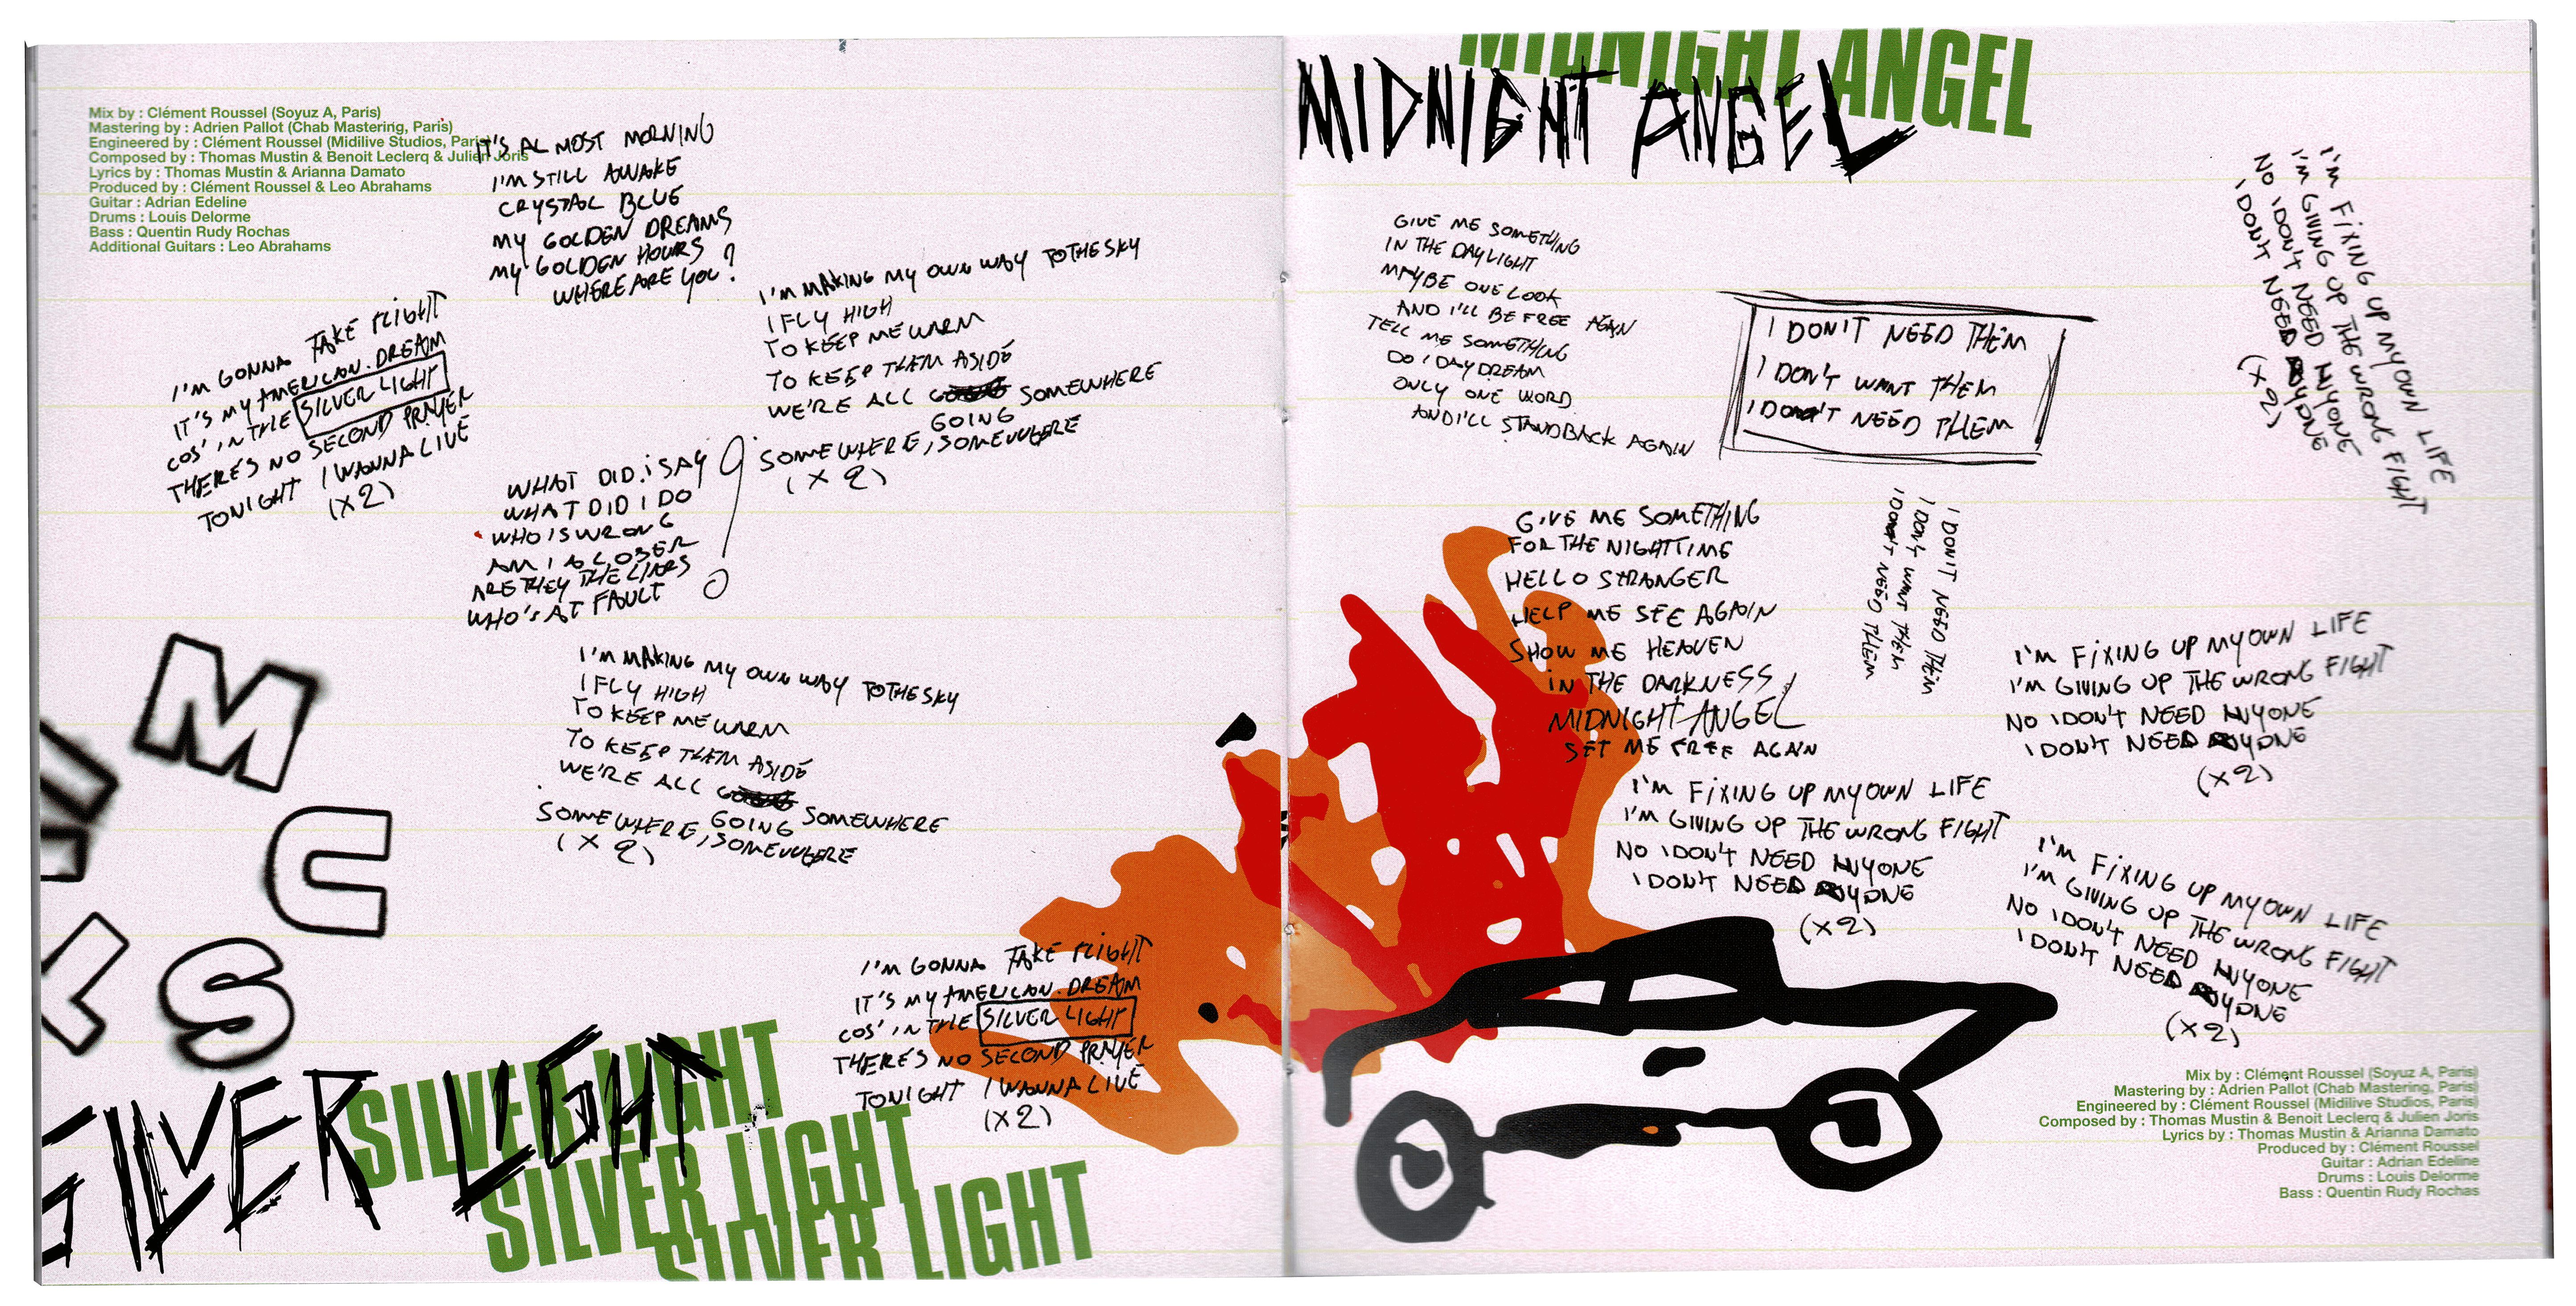 Mix by : Clément Roussel (Soyuz A, Paris)
Mastering by : Adrien Pallot (Chab Mastering, Paris)
Engineered by : Clément Roussel (Midilive Studios, Paris)
Composed by : Thomas Mustin & Benoit Leclerq & Julien Joris
Lyrics by : Thomas Mustin & Arianna Damato
Produced by : Clément Roussel & Leo Abrahams
Guitar : Adrian Edeline
Drums : Louis Delorme
Bass : Quentin Rudy Rochas
Additional Guitars : Leo Abrahams
IT'S ALMOST MORNING
I'M STILL AWAKE
CRYSTAL BLUE
MY GOLDEN DREAMS
MY GOLDEN HOURS
WHERE ARE YOU ?
I'M GONNA TAKE FLIGHT
IT'S MY AMERICAN DREAM
COS' IN THE SILVER LIGHT
THERE'S NO SECOND PRAYER
TONIGHT I WANNA LIVE
(X2)
I'M MAKING MY OWN WAY TO THE SKY
I FLY HIGH
TO KEEP ME WARM
TO KEEP THEM ASIDE
WE'RE ALL GOING SOMEWHERE
SOMEWHERE, SOMEWHERE
(X2)
WHAT DID I SAY
WHAT DID I DO
WHO IS WRONG
AM I A LOSER
ARE THEY THE LIARS
WHO'S AT FAULT ?
I'M MAKING MY OWN WAY TO THE SKY
I FLY HIGH
TO KEEP ME WARM
TO KEEP THEM ASIDE
WE'RE ALL GOING SOMEWHERE
SOMEWHERE, SOMEWHERE
(X2)
M
C
S
I'M GONNA TAKE FLIGHT
IT'S MY AMERICAN DREAM
COS' IN THE SILVER LIGHT
THERE'S NO SECOND PRAYER
TONIGHT I WANNA LIVE
(X2)
SILVER LIGHT
SILVER LIGHT
SILVER LIGHT
SILVER LIGHT
MIDNIGHT ANGEL
MIDNIGHT ANGEL
GIVE ME SOMETHING
IN THE DAYLIGHT
MAYBE ONE LOOK
AND I'LL BE FREE AGAIN
TELL ME SOMETHING
DO I DAYDREAM
ONLY ONE WORD
AND I'LL STAND BACK AGAIN
I DON'T NEED THEM
I DON'T WANT THEM
I DON'T NEED THEM
I'M FIXING UP MY OWN LIFE
I'M GIVING UP THE WRONG FIGHT
NO I DON'T NEED ANYONE
I DON'T NEED ANYONE
(X2)
GIVE ME SOMETHING
FOR THE NIGHTTIME
HELLO STRANGER
HELP ME SEE AGAIN
SHOW ME HEAVEN
IN THE DARKNESS
MIDNIGHT ANGEL
SET ME FREE AGAIN
I DON'T NEED THEM
I DON'T WANT THEM
I DON'T NEED THEM
I'M FIXING UP MY OWN LIFE
I'M GIVING UP THE WRONG FIGHT
NO I DON'T NEED ANYONE
I DON'T NEED ANYONE
(X2)
I'M FIXING UP MY OWN LIFE
I'M GIVING UP THE WRONG FIGHT
NO I DON'T NEED ANYONE
I DON'T NEED ANYONE
(X2)
I'M FIXING UP MY OWN LIFE
I'M GIVING UP THE WRONG FIGHT
NO I DON'T NEED ANYONE
I DON'T NEED ANYONE
(X2)
Mix by : Clément Roussel (Soyuz A, Paris)
Mastering by : Adrien Pallot (Chab Mastering, Paris)
Engineered by : Clément Roussel (Midilive Studios, Paris)
Composed by : Thomas Mustin & Benoit Leclerq & Julien Joris
Lyrics by : Thomas Mustin & Arianna Damato
Produced by : Clément Roussel
Guitar : Adrian Edeline
Drums : Louis Delorme
Bass : Quentin Rudy Rochas